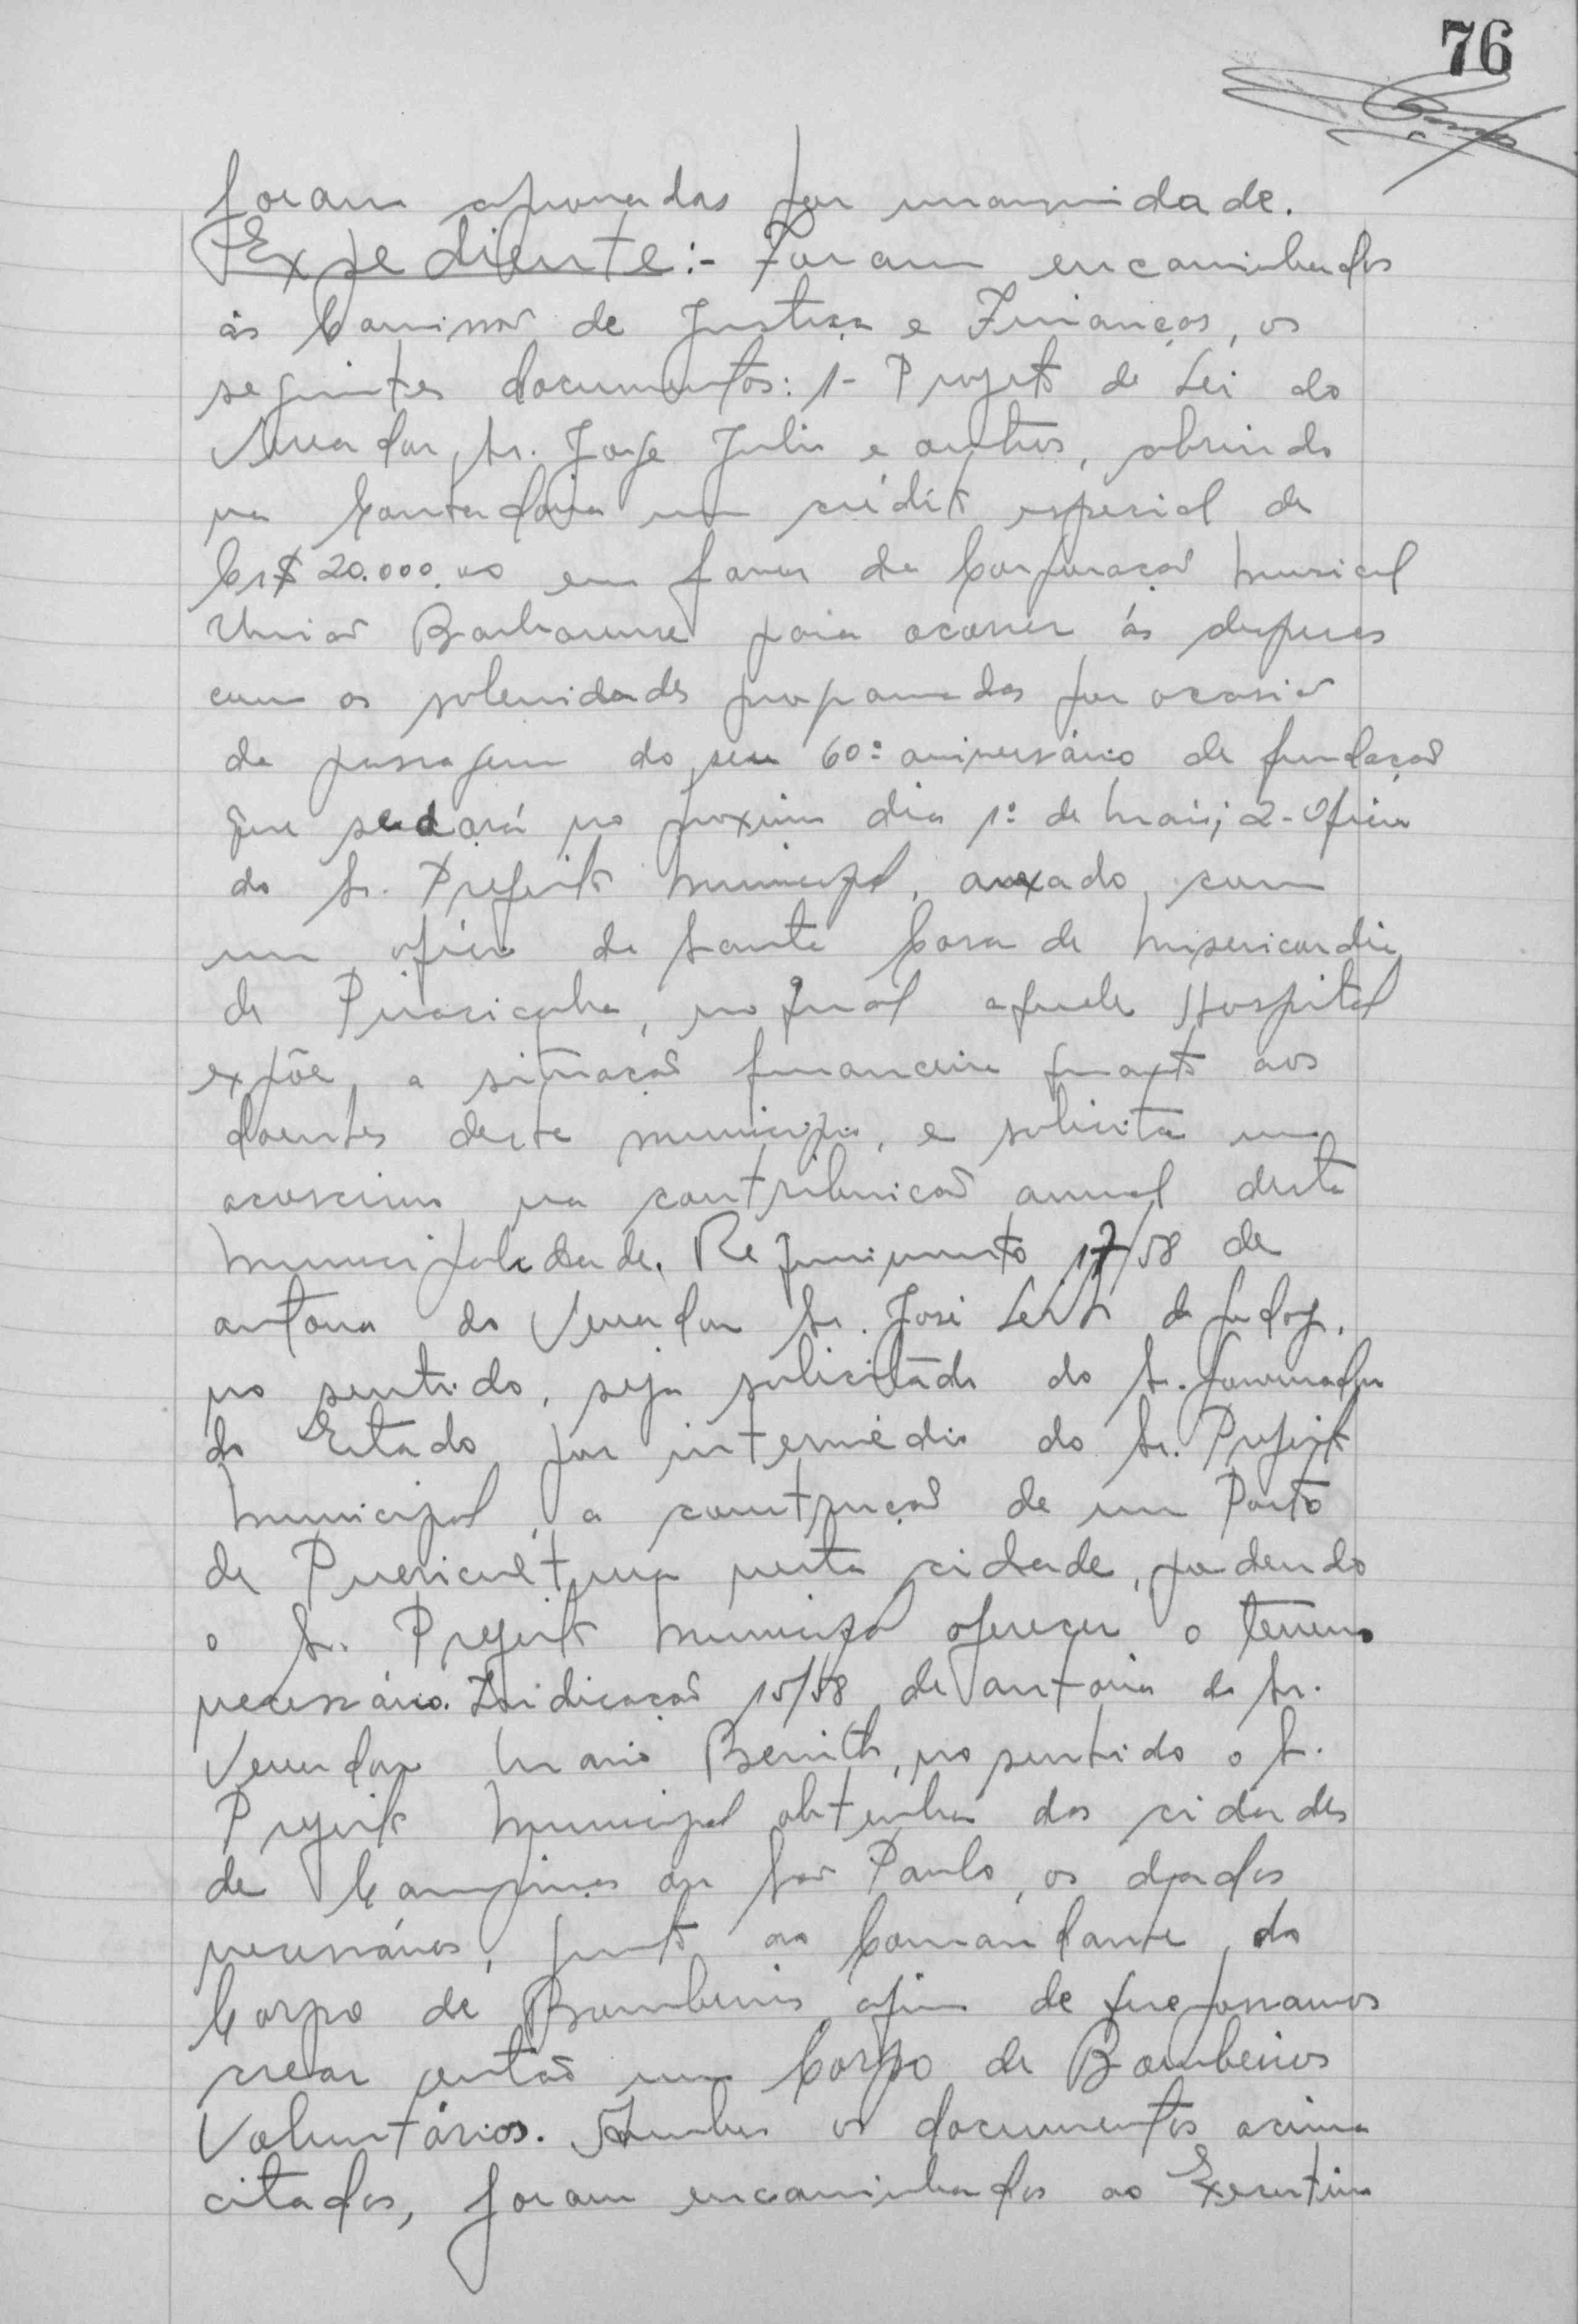 76
foram aprovadas por unanimidade.
Expediente:- Foram encaminhados
ás Comissão de Justiça e Finanças, os
seguintes documentos: 1- Projeto de Lei do
Vereador, Sr. Jorge Julio e outros, abrindo
na Contadoria um crédito especial de
Cr$ 20.000,00 em favor da Corporação Musical
União Barbarense para ocorrer ás despesas
com as solenidades programadas por ocasião
da passagem do seu 60º aniversário de fundação
que se dará no proximo dia 1º de Maio; 2- Oficio
do Sr. Prefeito Municipal, anexado, com
um oficio da Santa Casa de Misericordia
de Piracicaba, no qual aquele Hospital
expõe, a situação financeira quanto aos
doentes deste municipio, e solicita um
acrescimo na contribuição anual desta
Municipalidade. Requerimento 17/58 de
autoria do Vereador Sr. José Leite de Godoy,
no sentido, seja solicitado do Sr. Governador
do Estado por intermédio do Sr. Prefeito
Municipal, a construção de um Posto
de Puericultura nesta cidade, podendo
o Sr. Prefeito Municipal oferecer o terreno
necessário. Indicação 15/58 de autoria do Sr.
Vereador Mario Benith, no sentido o Sr.
Prefeito Municipal obtenha das cidades
de Campinas ou São Paulo, os dados
necessários, junto ao Comandante, do
Corpo de Bombeiros, afim de que possamos
crear então um Corpo de Bombeiros
Voluntários. Ambos os documentos acima
citados, foram encaminhados ao Executivo